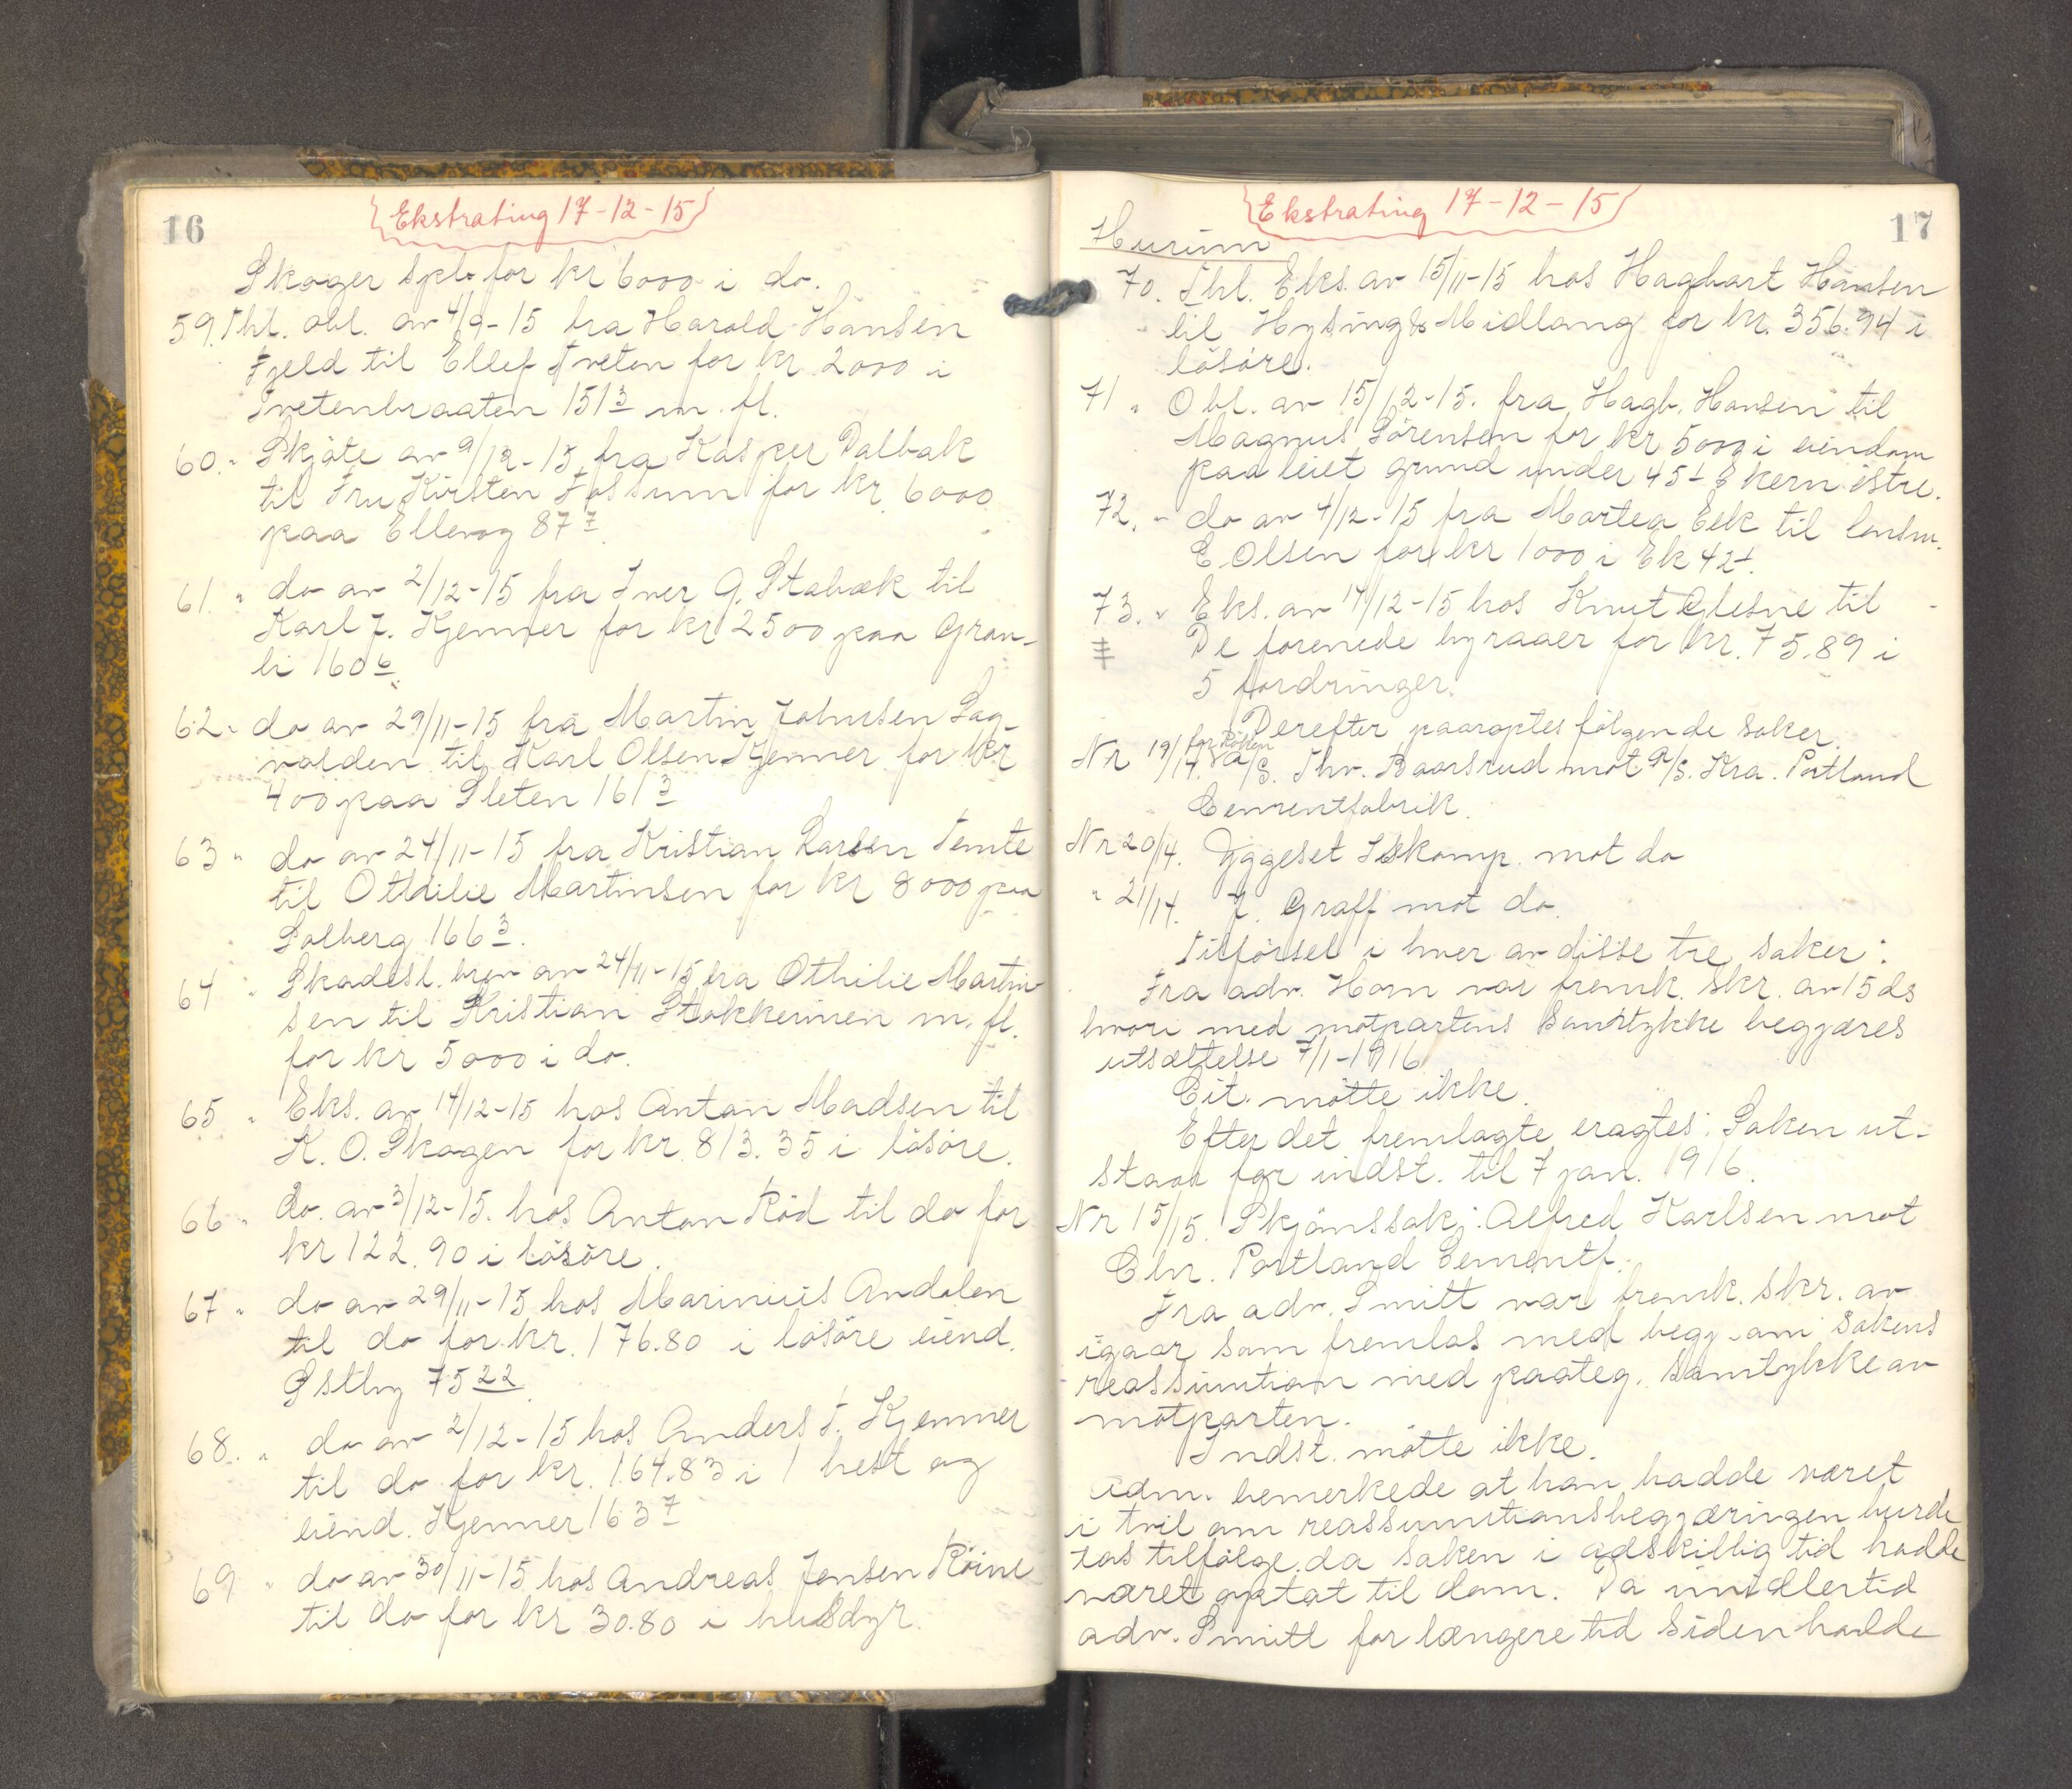 16
Ekstrating 17-12-15
Skoger spb for kr 6000 i do.
59. Thl. obl. av 4/9-15 fra Harald Hansen
Fjeld til Ellef Tveten for kr 2000 i
Tvetenbraaten 151 3 m. fl.
60. " Skjöte av 9/12-15 fra Kasper Dalbak
til Fru Kirsten Fossum for kr. 6000
paa Ellevog 87 7.
61. " do av 2/12-15 fra Iver G. Stabæk til
Karl J. Kjenner for kr 2500 paa Gran-
li 160 6.
62. " do av 29/11-15 fra Martin Johnsen Lag-
valden til Karl Olsen Kjenner for kr
400 paa Sleten 161 3
63 " do av 24/11-15 fra Kristian Larsen Temte
til Othilie Martinsen for kr 8000 paa
Solberg 166 3.
64 " Skadesl. brev av 24/11-15 fra Othilie Martin-
sen til Kristian Stokkerinen m. fl.
for kr 5000 i do.
65 " Eks. av 14/12-15 hos Anton Madsen til
K. O. Skogen for kr. 813.35 i lösöre.
66 " do. av 3/12-15. hos Anton Röd til do for
kr 122.90 i lösöre.
67 " do av 29/11-15 hos Marinius Andalen
til do for kr. 176.80 i lösöre eiend.
Östby 75 22.
68. " do av 2/12-15 hos Anders T. Kjenner
til do for kr. 164.83 i 1 hest og
eiend. Kjenner 163 7
69 " do av 30/11-15 hos Andreas Jensen Röine
til do for kr 30.80 i husdyr.
17
Ekstrating 17-12-15
Hurum
70. Thl. Eks. av 15/11-15 hos Hagbart Hansen
til Hysing & Midlang for kr. 356.94 i
lösöre.
71 " Obl. av 15/12-15. fra Hagb. Hansen til
Magnus Sörensen for kr 5000 i eiendom
paa leiet grund under 45 1 Ekern östre.
72. " do av 4/12-15 fra Martea Eek til lensm.
E. Olsen for kr 1000 i Ek 42 1.
73. " Eks. av 14/12-15 hos Knut Glesne til
De forenede byraaer for kr. 75.89 i
5 fordringer.
Derefter paaroptes følgende saker.
for Röken
Nr 19/14. A/S. Thv. Baarsrud mot A/S. Kra. Portland
Cementfabrik.
Nr 20/14. Yggeset Iskomp. mot do
" 21/14. J. Graff mot do.
Tilförsel i hver av disse tre saker:
Fra adv. Horn var fremk. skr. av 15 ds
hvori med motpartens samtykke begjæres
utsættelse 7/1-1916
Cit. mötte ikke.
Efter det fremlagte eragtes: Saken ut-
staar for indst. til 7 jan. 1916.
Nr 15/15. Skjönssak: Alfred Karlsen mot
Chr. Portland Cementf.
Fra adv. Smitt var fremk. skr. av
igaar som fremlas med begj. om sakens
reassumtion med paateg. samtykke av
motparten.
Indst. mötte ikke.
Adm. bemerkede at han hadde været
i tvil om reassumtionsbegjæringen burde
tas tilfölge, da saken i adskillig tid hadde
været optat til dom. Da imidlertid
adv. Smitt for længere tid siden hadde